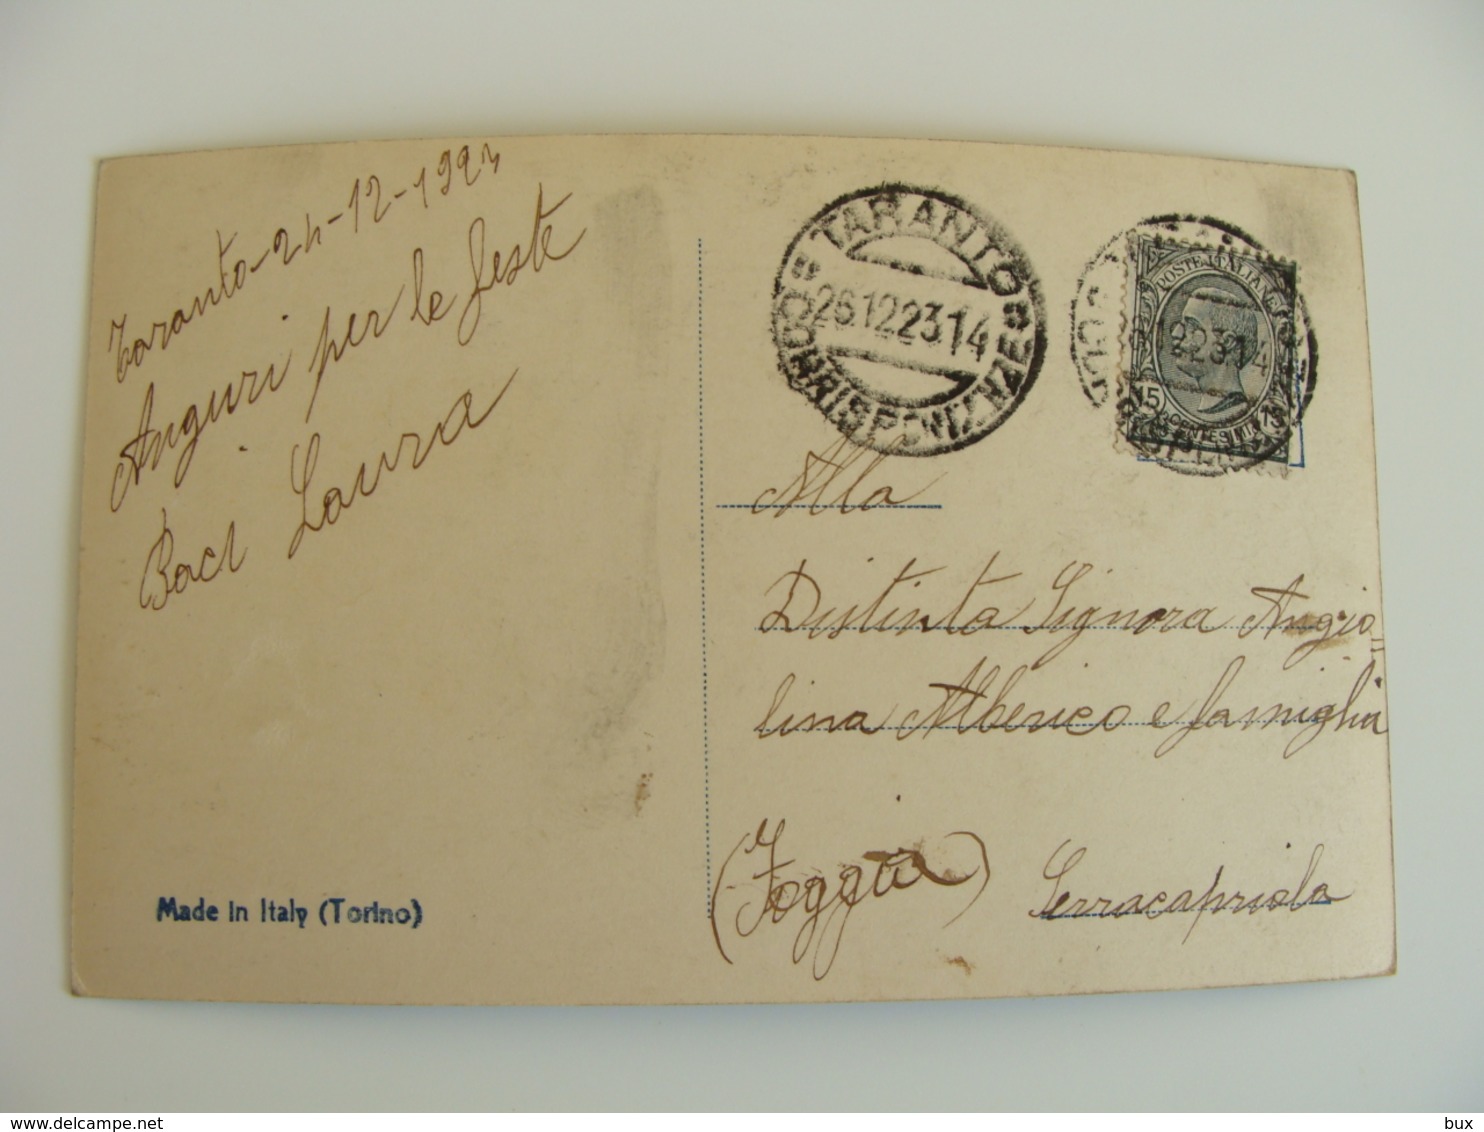 Taranto-24-12-1923
Anguri per le feste
Baci Laura
Made in Italy (Torino)
TARANTO
26 12 23 14
CORRISPONDENZE
POSTE ITALIANE
15 CENTESIMI 15
Alla
Distinta Signora Angio=
lina Alberico e famiglia
(Foggia) Serracapriola
delcampe.net
bux